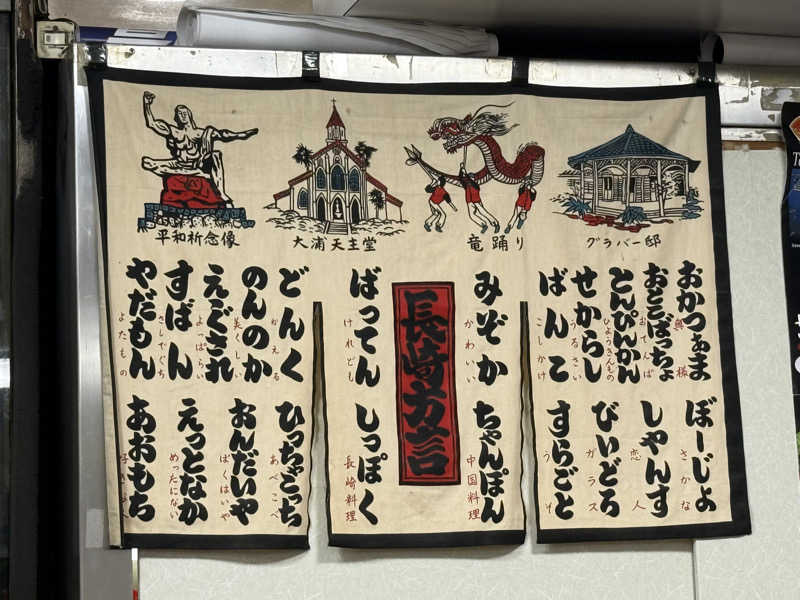 平和祈念像
大浦天主堂
竜踊り
グラバー邸
おかつぁま
奥様
おとこばっちょ
おてんば
とんぴんかん
ひょうきんもの
せからし
うるさい
ばんこ
こしかけ
ぼーじょ
さかな
しゃんす
恋人
びいどろ
ガラス
すらごと
うそ
みぞか
かわいい
ちゃんぽん
中国料理
長崎方言
ばってん
けれども
しっぽく
長崎料理
どんく
かえる
のんのか
美くしい
えぐされ
よっぱらい
すばん
さしでぐち
やだもん
よたもの
ひっちゃごっち
あべこべ
おんだいや
ばくはいや
えっとなか
めったにない
あおもち